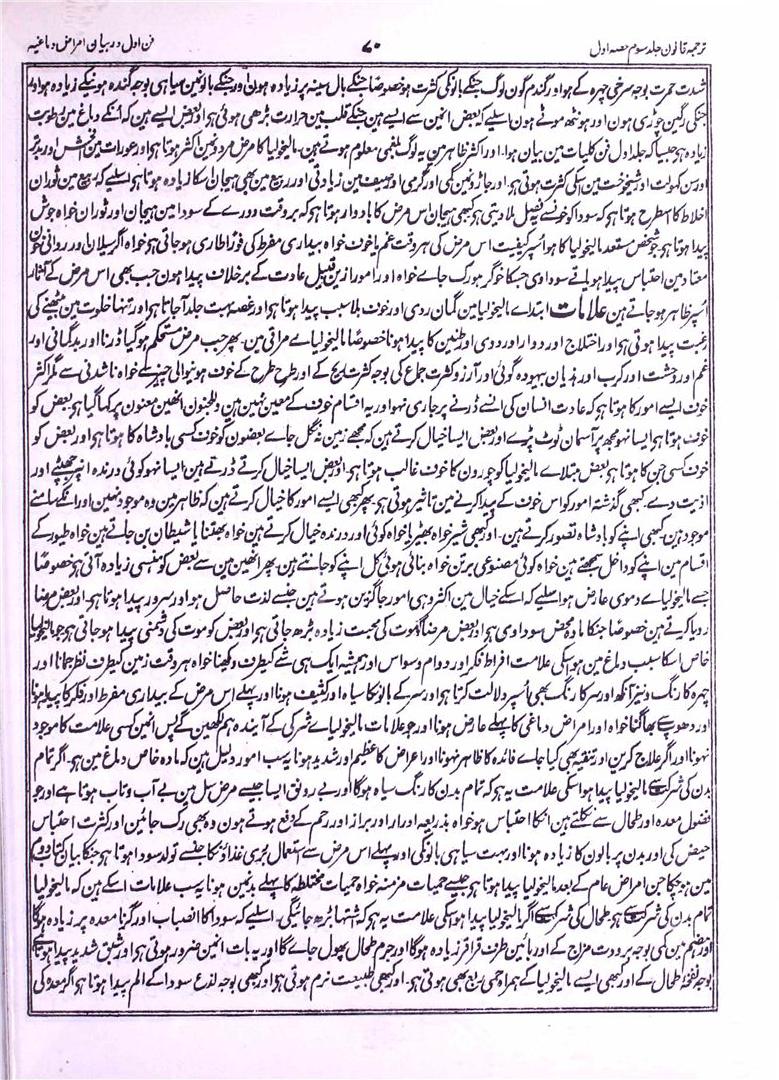 ترجمہ قانون جلد سوم حصہ اول ۷۰ فن اول در بیان امراض دماغیہ
شدت حمرت بوجہ سرخی چہرہ کے ہو اور گندم گون لوگ جنکے بالونکی کثرت ہو خصوصاً جنکے بال سینہ پر زیادہ ہون اور جنکے بالونمین سیاہی بوجہ گندہ ہونیکے زیادہ ہو اور
جنکی رگین چوڑی ہون اور ہونٹھ موٹے ہون اسلیے کہ بعض انمین سے ایسے ہین جنکے قلب مین حرارت بڑھی ہوئی ہو اور بعض ایسے ہین کہ انکے دماغ مین رطوبت
زیادہ ہو جیسا کہ جلد اول فن کلیات مین بیان ہوا۔ اور اکثر ظاہر مین یہ لوگ بلغمی معلوم ہوتے ہین۔ مالیخولیا کا مرض مردونمین اکثر ہوتا ہو اور عورات مین فحش اور بدتر
اور سن کہولت اور شیخوخت مین اسکی کثرت ہوتی ہو۔ اور جاڑونمین کمی اور گرمی اور صیف مین زیادتی اور ربیع مین بھی ہیجان اسکا زیادہ ہوتا ہو اسلیے کہ ربیع مین ثوران
اخلاط کا اسطرح ہوتا ہو کہ سودا کو خونسے بفضل ملا دیتی ہو کبھی ہیجان اس مرض کا بادوار ہوتا ہو کہ بروقت دورے کے سودا مین ہیجان اور ثوران خواہ جوش
پیدا ہوتا ہو جو شخص مستعد مالیخولیا کا ہو اسپر کیفیت اس مرض کی ہر وقت غم یا خوف خواہ بیداری مفرط کی فوراً طاری ہو جاتی ہو خواہ اگر سیلان اور روانی خون
معتاد مین احتباس پیدا ہو یا قے سوداوی جسکا خوگر ہو رک جاے خواہ اور امور ازین قبیل عادت کے برخلاف پیدا ہون جب بھی اس مرض کے آثار
اسپر ظاہر ہو جاتے ہین علامات ابتداے مالیخولیا مین گمان ردی اور خوف بلا سبب پیدا ہوتا ہو اور غصہ بہت جلد آ جاتا ہو اور تنہا خلوت مین بیٹھنے کی
رغبت پیدا ہوتی ہو اور اختلاج اور دوار اور دوی اور طنین کا پیدا ہونا خصوصاً مالیخولیاے مراقی مین۔ پھر جب مرض مستحکم ہو گیا ڈرنا اور بدگمانی اور
غم اور وحشت اور کرب اور ہذیان بیہودہ گوئی اور آرزو کثرت جماع کی بوجہ کثرت ریح کے اور طرح طرح کے خوف ہونیوالی چیز سے خواہ ناشدنی سے مگر اکثر
خوف ایسے امور کا ہوتا ہو کہ عادت انسان کی انسے ڈرنے پر جاری نہو اور یہ اقسام خوف کے معین نہین ہین و الجنون انھین معنون پر کہا گیا ہو بعض کو
خوف ہوتا ہو ایسا نہو مجھ پر آسمان ٹوٹ پڑے اور بعض ایسا خیال کرتے ہین کہ مجھے زمین نگل جاے بعضون کو خوف کسی بادشاہ کا ہوتا ہو اور بعض کو
خوف کسی جن کا ہوتا ہو بعض مبتلاے مالیخولیا کو چورون کا خوف غالب ہوتا ہو۔ اور بعض ایسا خیال کرتے ڈرتے ہین ایسا نہو کوئی درندہ انپر جھپٹے اور
اذیت دے۔ کبھی گذشتہ امور کو اس خوف کے پیدا کرنے مین تاثیر ہوتی ہو۔ پھر کبھی ایسے امور کا خیال کرتے ہین کہ ظاہر مین وہ موجود نہین اور انکے سامنے
موجود ہین۔ کبھی اپنے کو بادشاہ تصور کرتے ہین۔ اور کبھی شیر خواہ بھیڑیا خواہ کوئی اور درندہ خیال کرتے ہین خواہ بھتنا یا شیطان بن جاتے ہین خواہ طیور کے
اقسام مین اپنے کو داخل سمجھتے ہین خواہ کوئی مصنوعی برتن خواہ بنائی ہوئی کل اپنے کو جانتے ہین۔ پھر انھین مین سے بعض کو ہنسی زیادہ آتی ہو خصوصاً
جسے مالیخولیاے دموی عارض ہو اسلیے کہ اسکے خیال مین اکثر وہی امور جاگزین ہوتے ہین جنسے لذت حاصل ہو اور سرور پیدا ہوتا ہو۔ اور بعض مرضا
رویا کرتے ہین خصوصاً جنکا مادہ محض سوداوی ہو۔ اور بعض مرضا کو موت کی محبت زیادہ بڑھ جاتی ہو اور بعض کو موت کی دشمنی پیدا ہو جاتی ہو جو مالیخولیا
خاص اسکا سبب دماغ مین ہو اسکی علامت افراط فکر اور دوام وسواس اور ہمیشہ ایک ہی شے کیطرف دیکھنا خواہ ہر وقت زمین کیطرف نظر جمانا اور
چہرہ کا رنگ و نیز آنکھ اور سر کا رنگ بھی اسپر دلالت کرتا ہو اور سر کے بالونکا سیاہ اور کثیف ہونا اور پہلے اس مرض کے بیداری مفرط اور فکر کا پیدا ہونا
اور دھوپ سے بھاگنا خواہ اور امراض دماغی کا پہلے عارض ہونا اور جو علامات مالیخولیاے شرکی کے آیندہ ہم لکھین گے پس انمین کسی علامت کا موجود
نہونا اور اگر علاج کرین اور تنقیہ بھی کیا جاے فائدہ کا ظاہر نہونا اور اعراض کا عظیم اور شدید ہونا یہ سب امور دلیل ہین کہ مادہ خاص دماغ مین ہو۔ اگر تمام
بدن کی شرکت سے مالیخولیا پیدا ہو اسکی علامت یہ ہو کہ تمام بدن کا رنگ سیاہ ہوگا اور بے رونق ایسا جیسے مرض سل مین بے آب و تاب ہوتا ہے اور جو
فضول معدہ اور طحال سے نکلتے ہین انکا احتباس ہو خواہ بذریعہ ادرار اور براز اور رحم کے دفع ہوتے ہون وہ بھی رک جائین اور کثرت احتباس
حیض کی اور بدن پر بالون کا زیادہ ہونا اور بہت سیاہی بالونکی اور پہلے اس مرض سے استعمال بُری غذاؤنکا جنسے تولد سودا ہوتا ہو جنکا بیان کتاب دوم
مین ہو چکا جن امراض عام کے بعد مالیخولیا پیدا ہوتا ہو جیسے حمیات مزمنہ خواہ حمیات مختلطہ کا پہلے بدنمین ہونا یہ سب علامات اسکے ہین کہ مالیخولیا
تمام بدن کی شرکت سے ہو طحال کی شرکت سے اگر مالیخولیا پیدا ہو اسکی علامت یہ ہو کہ اشتہا بڑھ جائیگی۔ اسلیے کہ سودا کا انصباب اور گرنا معدہ پر زیادہ ہوگا
اور ہضم مین کمی بوجہ برودت مزاج کے اور بائین طرف قراقر زیادہ ہوگا اور جرم طحال پھول جاے گا اور یہ بات انمین ضرور ہوتی ہو اور شبق شدید پیدا ہوتا ہے
بوجہ نفخۂ طحال کے اور کبھی ایسے مالیخولیا کے ہمراہ حمی ربع بھی ہوتی ہو۔ اور کبھی طبیعت نرم ہوتی ہو اور کبھی بوجہ لذع سودا کے الم پیدا ہوتا ہو اگر معدہ کی